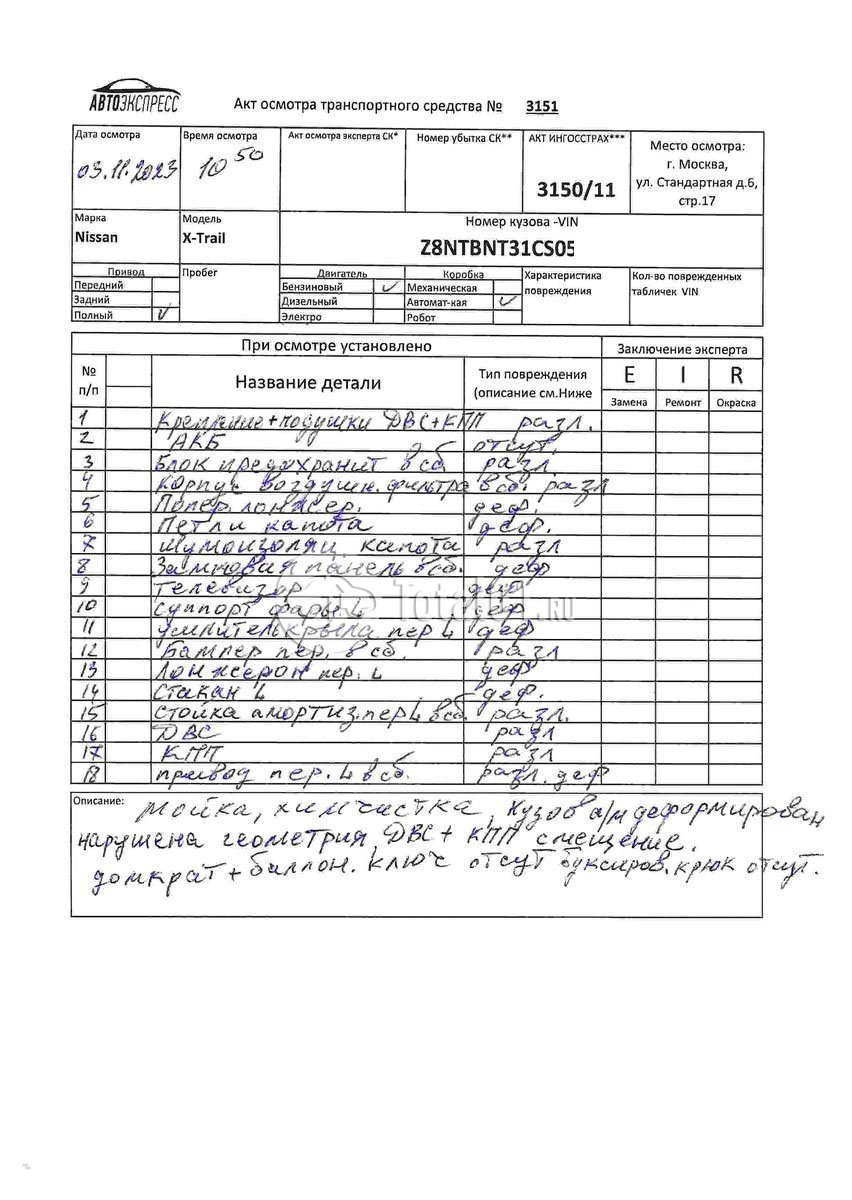 АВТОЭКСПРЕСС
Акт осмотра транспортного средства № 3151
Дата осмотра
03.11.2023
Время осмотра
10 50
Акт осмотра эксперта СК*
Номер убытка СК**
АКТ ИНГОССТРАХ***
3150/11
Место осмотра:
г. Москва,
ул. Стандартная д.6,
стр.17
Марка
Nissan
Модель
X-Trail
Номер кузова -VIN
Z8NTBNT31CS05
Привод
Передний
Задний
Полный
Пробег
Двигатель
Бензиновый
Дизельный
Электро
Коробка
Механическая
Автомат-кая
Робот
Характеристика
повреждения
Кол-во поврежденных
табличек VIN
При осмотре установлено
Заключение эксперта
№
п/п
Название детали
Тип повреждения
(описание см.Ниже
E I R
Замена Ремонт Окраска
1 Крепление+подушки ДВС+КПП разл.
2 АКБ отсут.
3 Блок предохранит в сб разл.
4 корпус воздушн. фильтра в сб. разл
5 Попер лонжер. деф.
6 Петли капота деф.
7 шумоизоляц капота разл
8 Замковая панель в сб. деф
9 Телевизор деф
10 суппорт фары L деф
11 усилитель крыла пер L деф
12 Бампер пер. в сб. разл
13 Лонжерон пер. L деф
14 Стакан L деф.
15 стойка амортиз.пер L в сб. разл.
16 ДВС разл
17 КПП разл
18 привод пер. L в сб. разл. деф
Total01.RU
Описание: мойка, химчистка, Кузов а/м деформирован
нарушена геометрия, ДВС + КПП смещение.
домкрат + баллон. ключ отсут буксиров. крюк отсут.